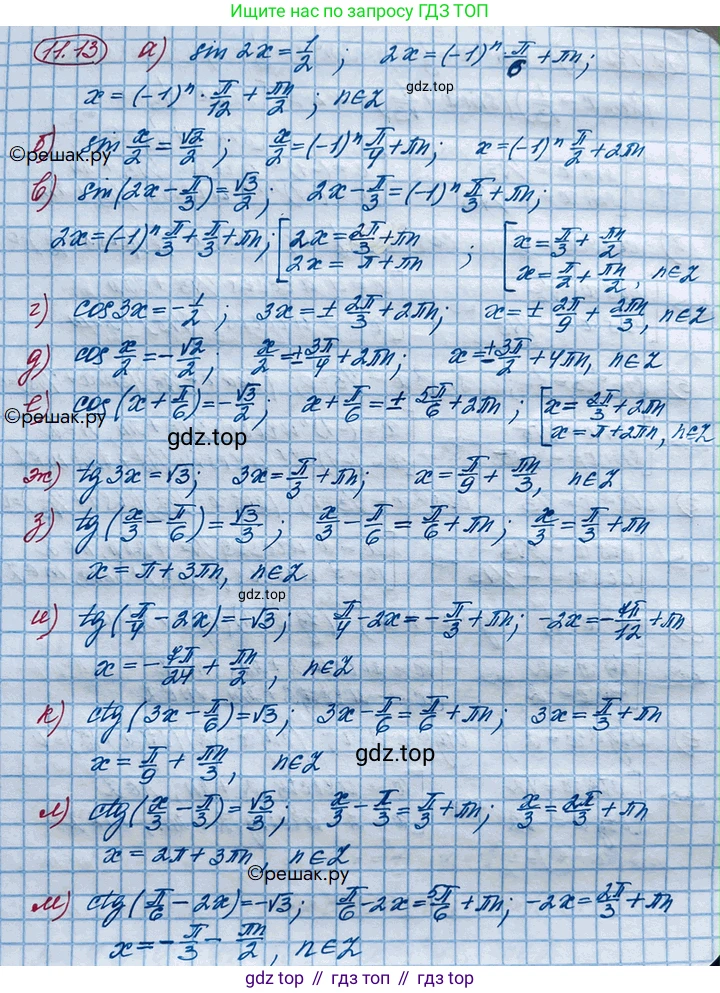 Ищите ответы по запросу ГДЗ ТОП
11.13 а) sin 2x = 1/2 ; 2x = (-1)ⁿ · π/6 + πn;
x = (-1)ⁿ · π/12 + πn/2 ; n∈Z
б) sin x/2 = √2/2 ; x/2 = (-1)ⁿ π/4 + πn; x = (-1)ⁿ π/2 + 2πn
©решак.ру
в) sin(2x - π/3) = √3/2 ; 2x - π/3 = (-1)ⁿ π/3 + πn;
2x = (-1)ⁿ π/3 + π/3 + πn; [ 2x = 2π/3 + πn ; [ x = π/3 + πn/2
2x = π + πn x = π/2 + πn/2, n∈Z
г) cos 3x = -1/2 ; 3x = ± 2π/3 + 2πn; x = ± 2π/9 + 2πn/3, n∈Z
д) cos x/2 = -√2/2 ; x/2 = ± 3π/4 + 2πn; x = ± 3π/2 + 4πn, n∈Z
е) cos(x + π/6) = -√3/2 ; x + π/6 = ± 5π/6 + 2πn ; [ x = 2π/3 + 2πn
x = π + 2πn, n∈Z
©решак.ру
gdz.top
ж) tg 3x = √3; 3x = π/3 + πn; x = π/9 + πn/3, n∈Z
з) tg(x/3 - π/6) = √3/3 ; x/3 - π/6 = π/6 + πn; x/3 = π/3 + πn
x = π + 3πn, n∈Z
и) tg(π/4 - 2x) = -√3; π/4 - 2x = -π/3 + πn; -2x = -7π/12 + πn
x = -7π/24 + πn/2, n∈Z
к) ctg(3x - π/6) = √3; 3x - π/6 = π/6 + πn; 3x = π/3 + πn
gdz.top
x = π/9 + πn/3, n∈Z
л) ctg(x/3 - π/3) = √3/3 ; x/3 - π/3 = π/3 + πn; x/3 = 2π/3 + πn
x = 2π + 3πn, n∈Z
©решак.ру
м) ctg(π/6 - 2x) = -√3; π/6 - 2x = 5π/6 + πn; -2x = 2π/3 + πn
x = -π/3 - πn/2, n∈Z
gdz.top // гдз топ // гдз.top